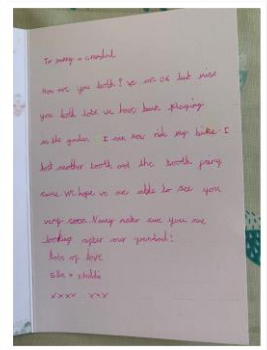 To nanny + Grandad
How are you both? We are OK but miss
you both lots we have been playing
in the garden. I can now ride my bike. I
lost another tooth and the tooth fairy
came. We hope we are able to see you
very soon. Nanny make sure you are
looking after our grandad!
lots of love
Ella +
xxxx xxx